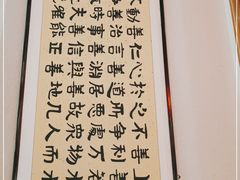 上善若水水
善利万物而
不争處衆人
之所惡故几
於道居善地
心善淵與善
仁言善信正
善治事善能
動善時夫唯